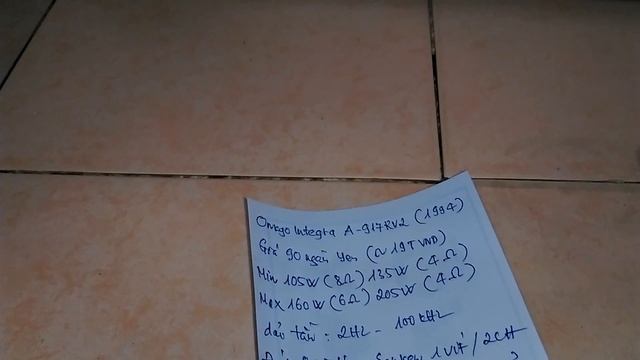 Onkyo Integra A-917RV2 (1994)
Giá 90 ngàn Yen (~ 19T VND)
Min 105W (8Ω) 135W (4Ω)
Max 160W (6Ω) 205W (4Ω)
dải tần : 2Hz - 100kHz
1 Việt / 2CH